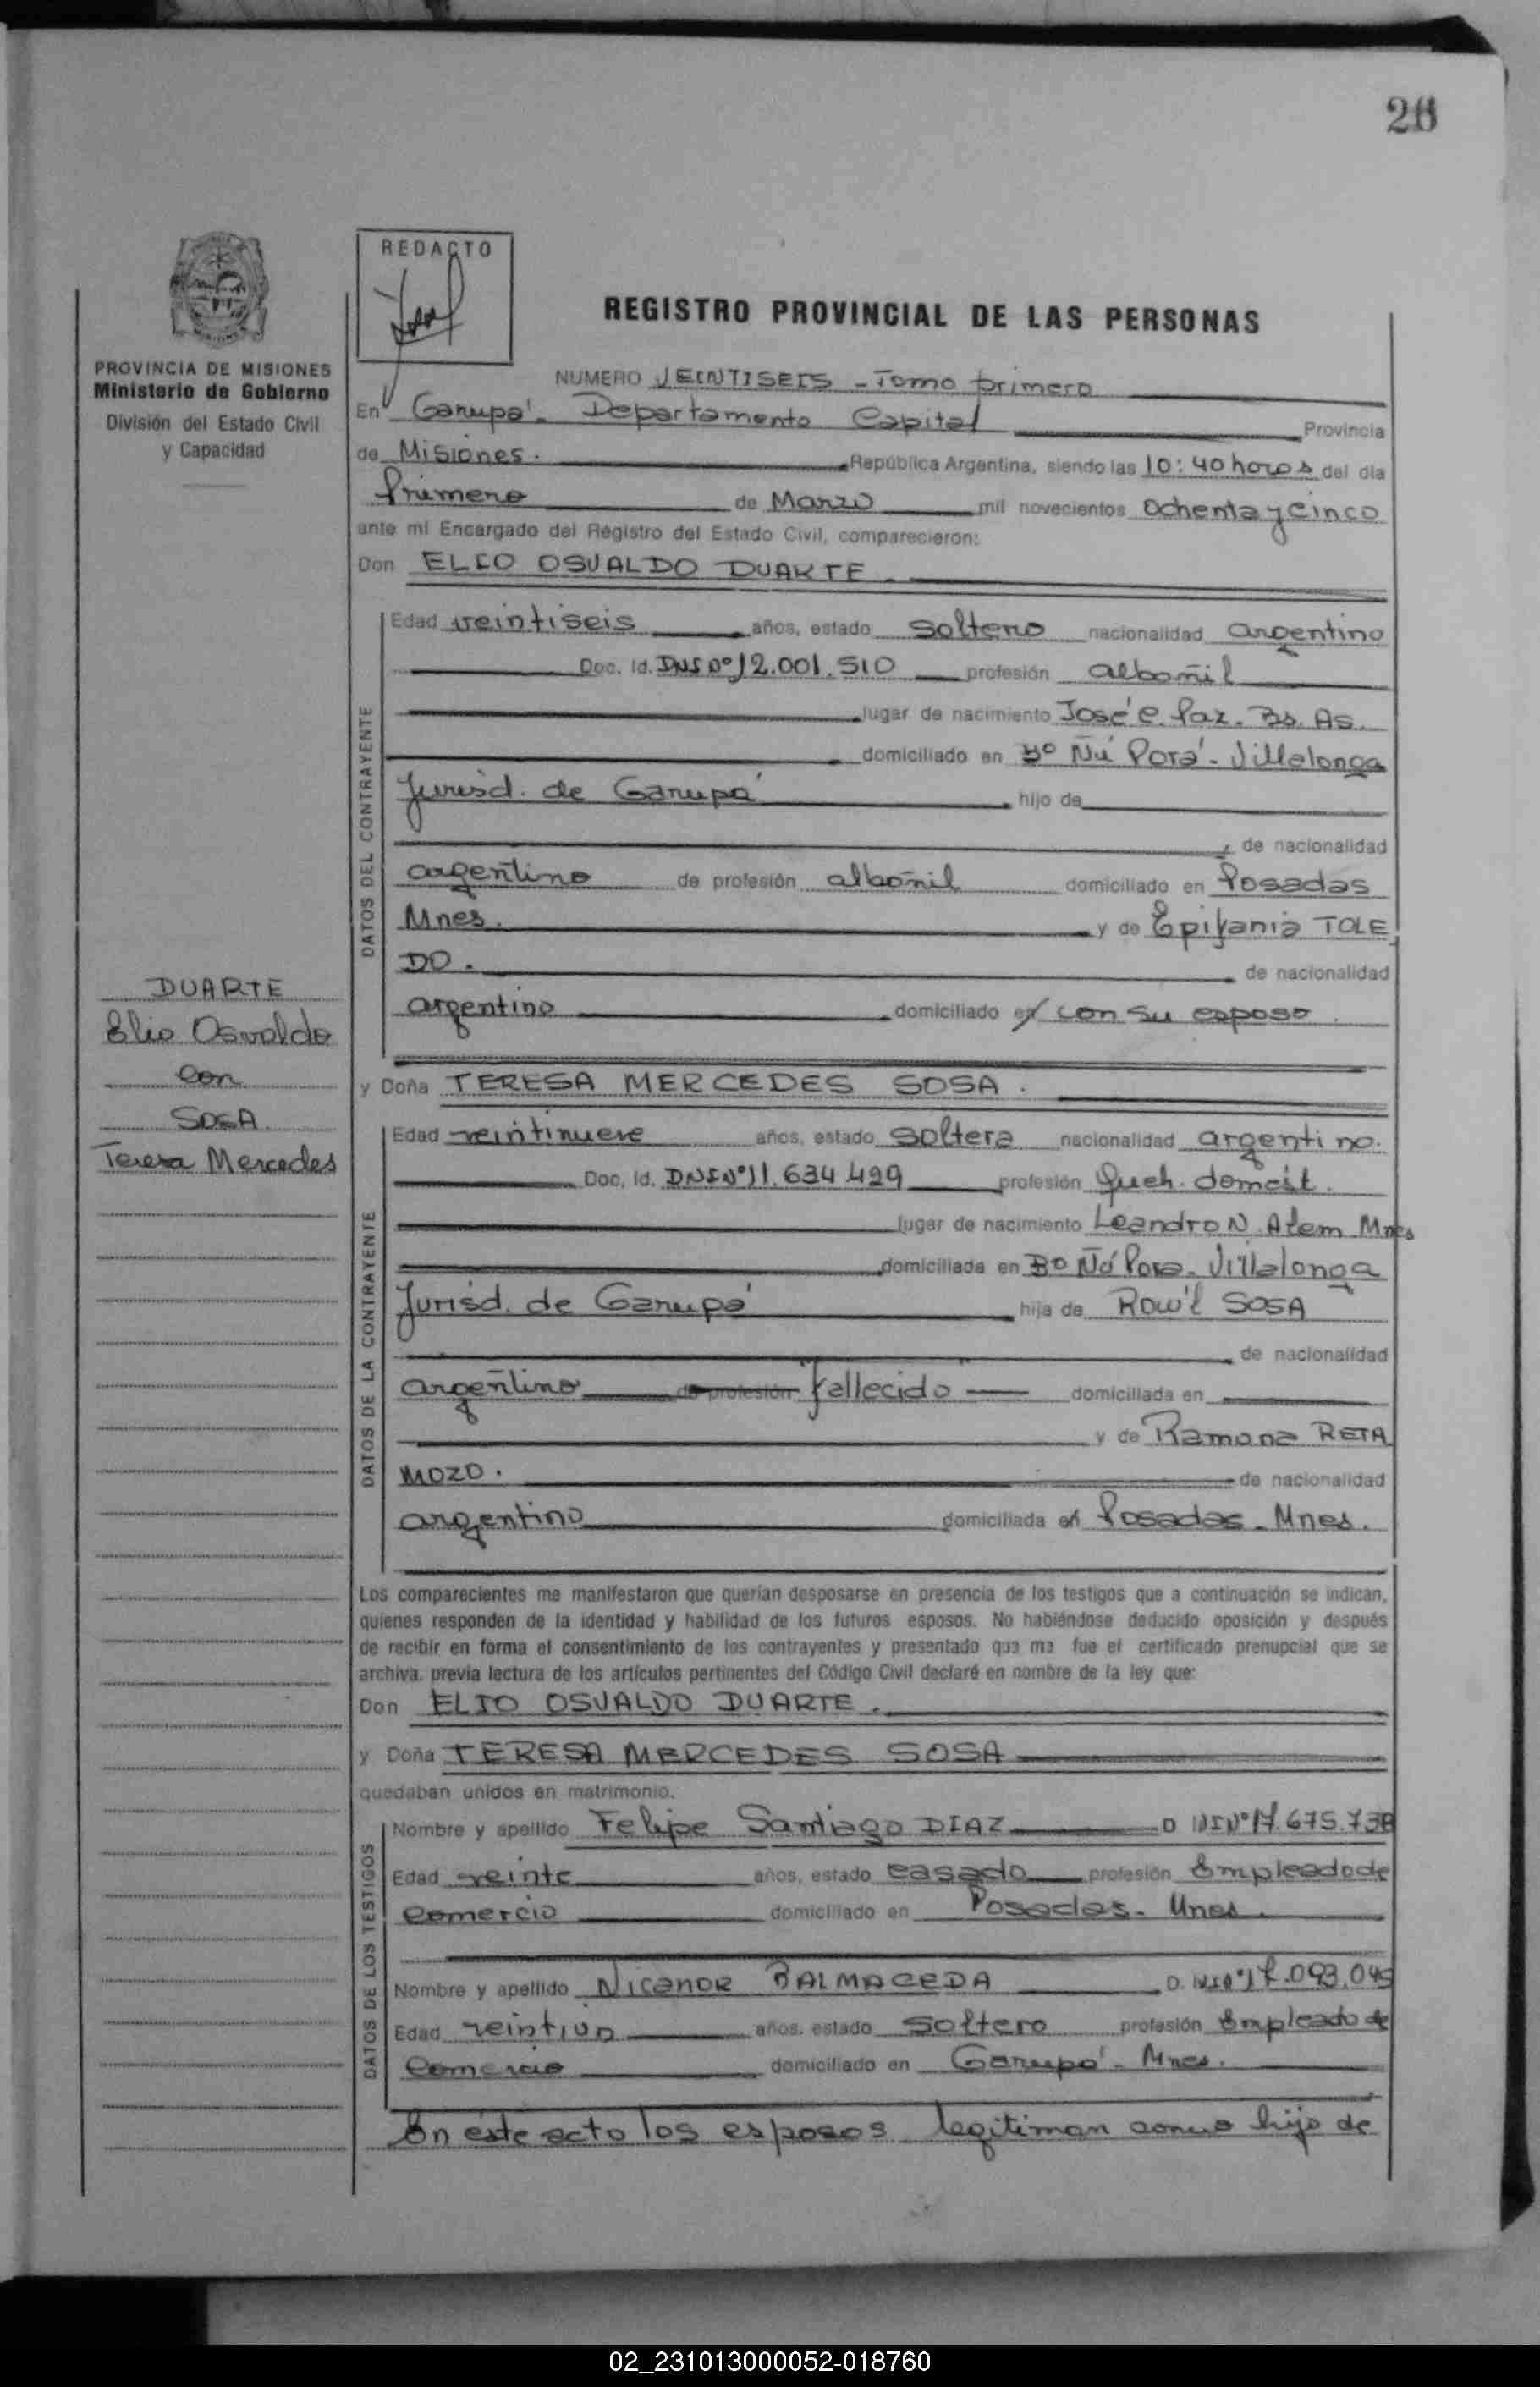 26
REDACTO
REGISTRO PROVINCIAL DE LAS PERSONAS
PROVINCIA DE MISIONES
Ministerio de Gobierno
División del Estado Civil
y Capacidad
NUMERO VEINTISEIS - Tomo primero
En Garupá - Departamento Capital Provincia
de Misiones. República Argentina, siendo las 10:40 horas del día
Primero de Marzo mil novecientos ochenta y cinco
ante mí Encargado del Registro del Estado Civil, comparecieron:
Don ELIO OSVALDO DUARTE.
DATOS DEL CONTRAYENTE
Edad veintiseis años, estado soltero nacionalidad argentino
Doc. Id. DNI Nº 12.001.510 profesión albañil
lugar de nacimiento José C. Paz. Bs. As.
domiciliado en Bº Ñú Porá - Villalonga
Jurisd. de Garupá hijo de
de nacionalidad
argentino de profesión albañil domiciliado en Posadas
Mnes. y de Epifania TOLE
DO. de nacionalidad
argentino domiciliado en con su esposo.
DUARTE
Elio Osvaldo
con
SOSA
Teresa Mercedes
y Doña TERESA MERCEDES SOSA.
DATOS DE LA CONTRAYENTE
Edad veintinueve años, estado soltera nacionalidad argentino.
Doc. Id. DNI Nº 11.634.499 profesión Queh. domést.
lugar de nacimiento Leandro N. Alem Mnes
domiciliada en Bº Ñú Porá - Villalonga
Jurisd. de Garupá hija de Raúl SOSA
de nacionalidad
argentino de profesión fallecido domiciliada en
y de Ramona RETA
MOZO. de nacionalidad
argentino domiciliada en Posadas - Mnes.
Los comparecientes me manifestaron que querían desposarse en presencia de los testigos que a continuación se indican,
quienes responden de la identidad y habilidad de los futuros esposos. No habiéndose deducido oposición y después
de recibir en forma el consentimiento de los contrayentes y presentado que me fue el certificado prenupcial que se
archiva. previa lectura de los artículos pertinentes del Código Civil declaré en nombre de la ley que:
Don ELIO OSVALDO DUARTE.
y Doña TERESA MERCEDES SOSA
quedaban unidos en matrimonio.
DATOS DE LOS TESTIGOS
Nombre y apellido Felipe Santiago DIAZ D NI Nº 17.675.738
Edad veinte años, estado casado profesión Empleado de
comercio domiciliado en Posadas - Mnes.
Nombre y apellido Nicanor BALMACEDA D. NI Nº 17.093.045
Edad veintiun años, estado soltero profesión Empleado de
Comercio domiciliado en Garupá - Mnes.
En este acto los esposos legitiman como hijo de
02_231013000052-018760